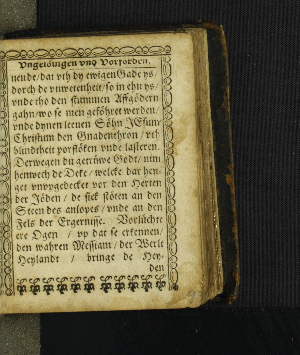 Ungelövigen unde Vorförden,
nende/dat vth dy ewigen Gade ys/
dorch de vnwetenheit/so in ehn ys/
vnde tho den stummen Affgödern
gahn/wo se men geföhret werden/
vnde dynen leeuen Söhn JEsum
Christum den Gnadenthron / vth
blindtheit vorflöken vnde lasteren.
Derwegen du getrüwe Godt/nim
henwech de Deke / welcke dar hen-
get vnvpgedecket vor den Herten
der Jöden / de sick stöten an den
Steen des anlopes/vnde an den
Fels der Ergernisse. Vorlüchte
ere Ogen / vp dat se erkennen/
den wahren Messiam / der Werlt
Heylandt / bringe de Hey-
den